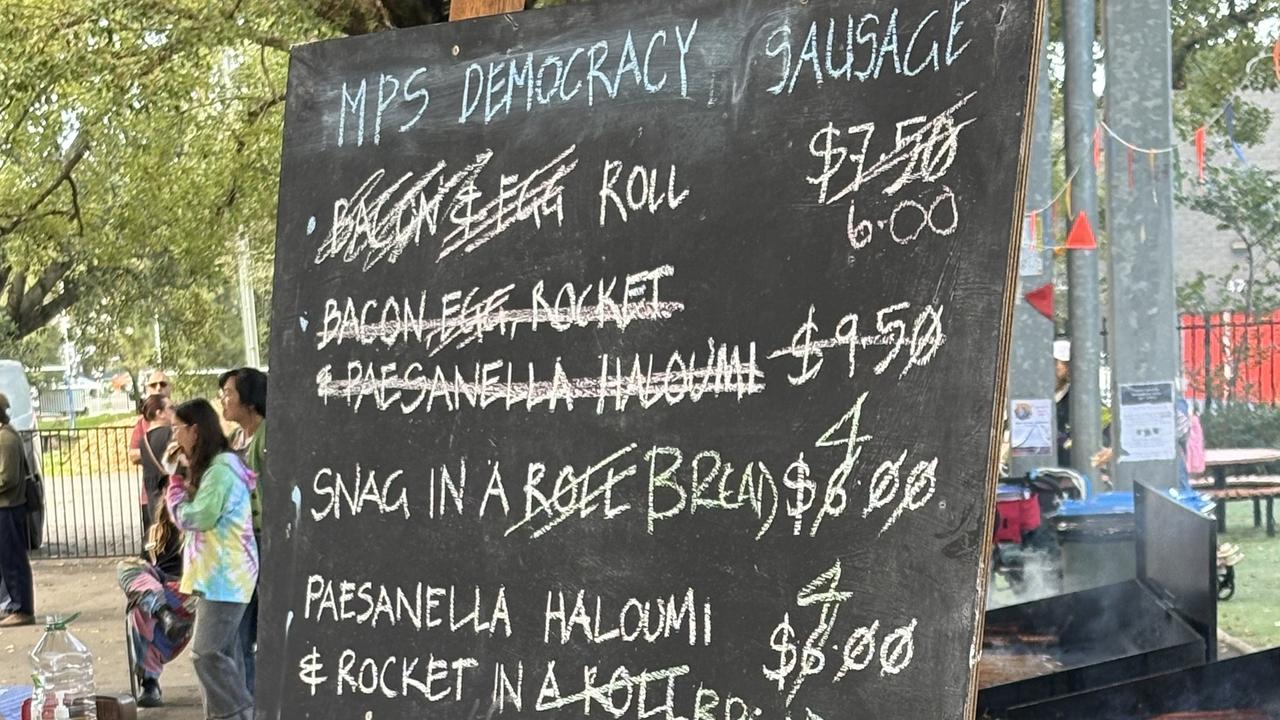 MPS DEMOCRACY SAUSAGE
BACON & EGG ROLL $7.50
6.00
BACON, EGG, ROCKET
& PAESANELLA HALOUMI $9.50
4
SNAG IN A ROLL BREAD $6.00
4
PAESANELLA HALOUMI
& ROCKET IN A ROLL $6.00